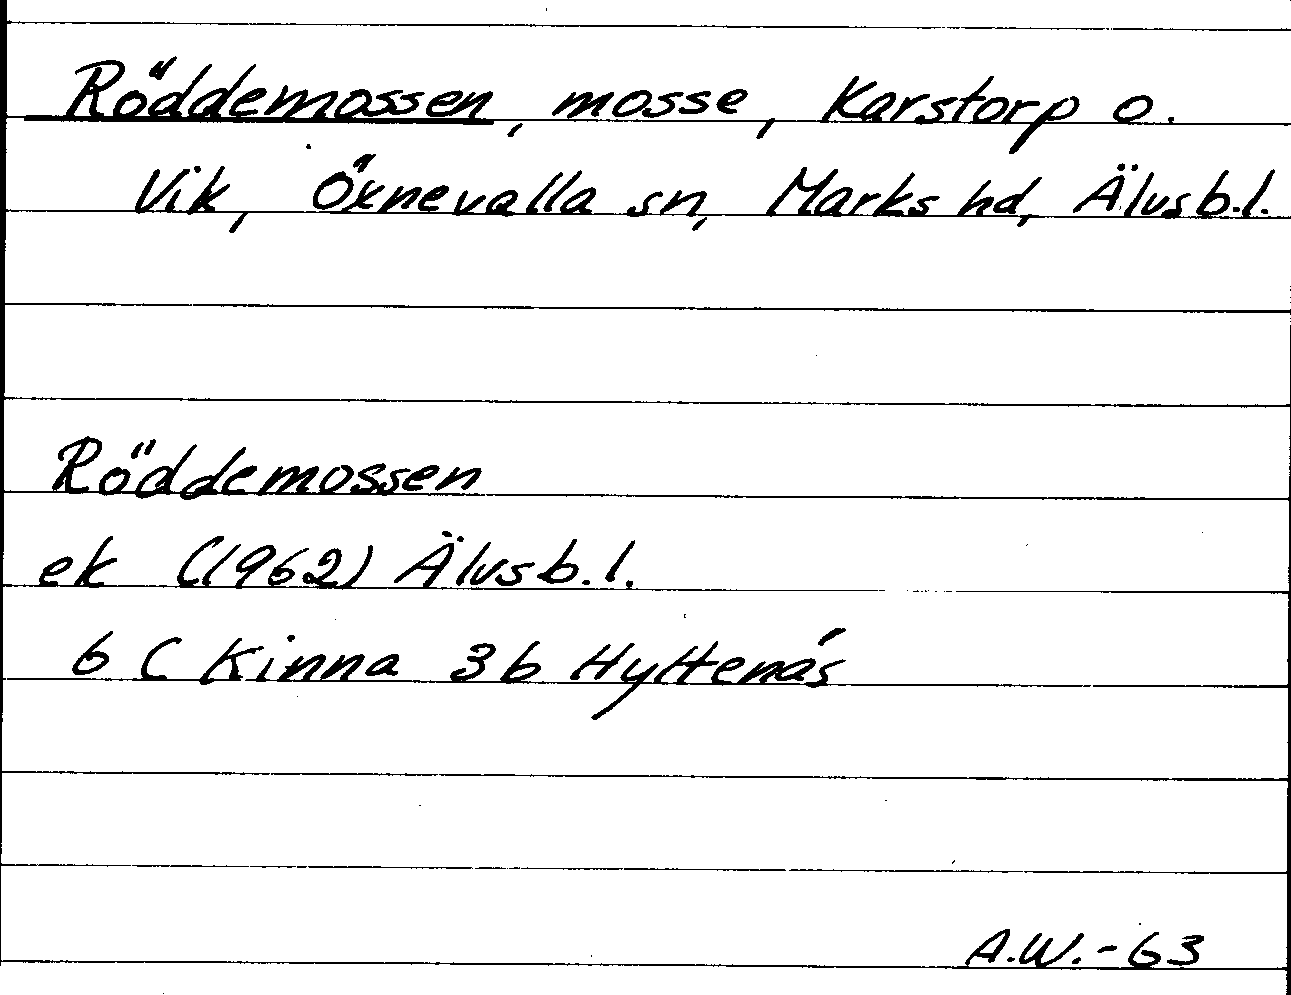 Röddemossen, mosse, Karstorp o.
Vik, Öxnevalla sn, Marks hd, Älvsb.l.
Röddemossen
ek (1962) Älvsb.l.
6 C Kinna 3b Hyttenäs
A.W.-63